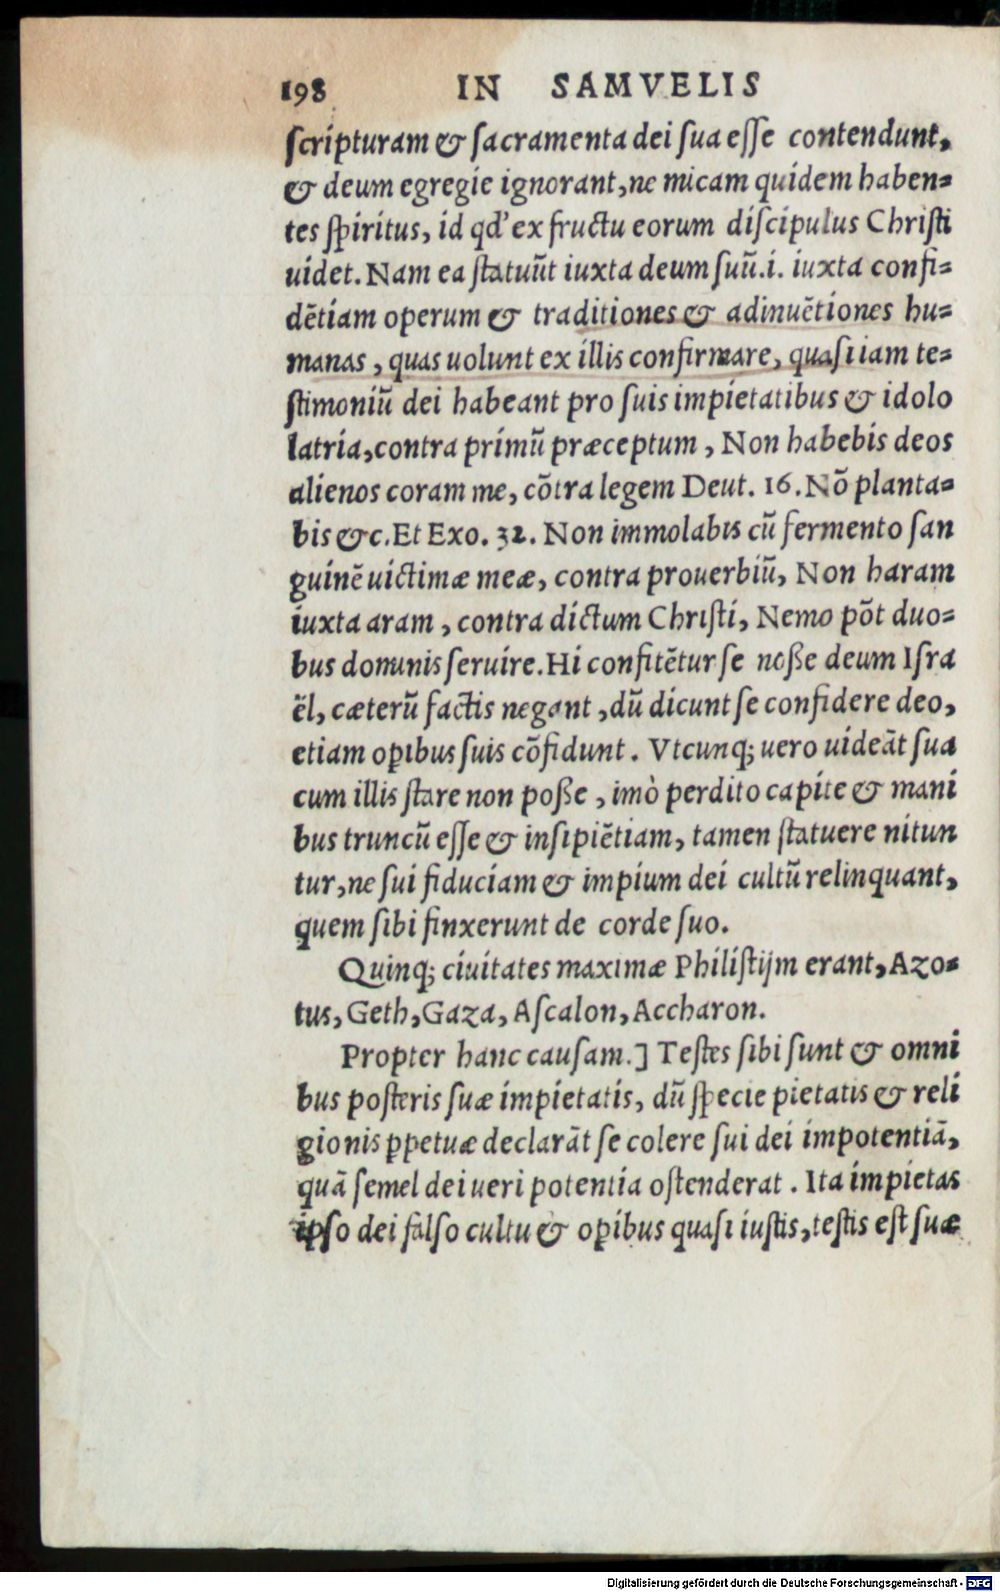 198 IN SAMVELIS
ſcripturam & ſacramenta dei ſua eſſe contendunt,
& deum egregie ignorant, ne micam quidem haben=
tes ſpiritus, id qd' ex fructu eorum diſcipulus Chriſti
uidet. Nam ea ſtatuūt iuxta deum ſuū .i. iuxta confi=
dētiam operum & traditiones & adinuētiones hu=
manas, quas uolunt ex illis confirmare, quaſi iam te=
ſtimoniū dei habeant pro ſuis impietatibus & idolo
latria, contra primū præceptum, Non habebis deos
alienos coram me, cōtra legem Deut. 16. Nō planta=
bis &c. Et Exo. 32. Non immolabis cū fermento ſan
guinē uictimæ meæ, contra prouerbiū, Non haram
iuxta aram, contra dictum Chriſti, Nemo pōt duo=
bus dominis ſeruire. Hi confitētur ſe noße deum Iſra
ēl, cæterū factis negant, dū dicunt ſe confidere deo,
etiam oꝑibus ſuis cōfidunt. Vtcunq; uero uideāt ſua
cum illis ſtare non poße, imò perdito capite & mani
bus truncū eſſe & inſipiētiam, tamen ſtatuere nitun
tur, ne ſui fiduciam & impium dei cultū relinquant,
quem ſibi finxerunt de corde ſuo.
Quinq; ciuitates maximæ Philiſtijm erant, Azo=
tus, Geth, Gaza, Aſcalon, Accharon.
Propter hanc cauſam.] Teſtes ſibi ſunt & omni
bus poſteris ſuæ impietatis, dū ſpecie pietatis & reli
gionis ꝑpetuæ declarāt ſe colere ſui dei impotentiā,
quā ſemel dei ueri potentia oſtenderat. Ita impietas
ipſo dei falſo cultu & oꝑibus quaſi iuſtis, teſtis eſt ſuæ
Digitalisierung gefördert durch die Deutsche Forschungsgemeinschaft - DFG